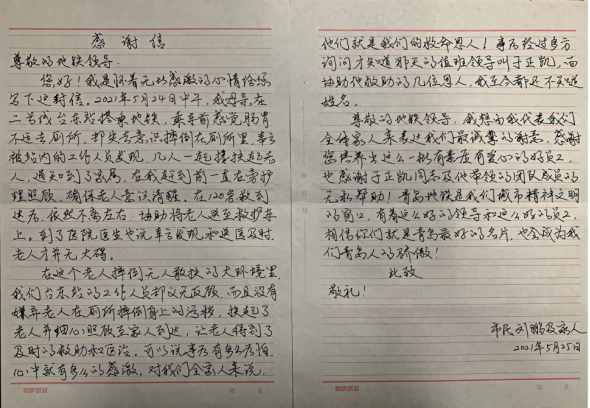 感谢信
尊敬的地铁领导:
您好!我是怀着无比感激的心情给您
写下这封信。2021年5月24日中午,我母亲在
二号线台东站搭乘地铁,乘车前感觉肠胃
不适去厕所,却失去意识摔倒在厕所里,幸亏
被站内的工作人员发现,几人一起搀扶起老
人,通知到了家属,在我赶到前一直在旁护
理照顾,确保老人意识清醒,在120急救到
达后,依然不离左右,协助将老人送至救护车
上。到了医院医生也说幸亏发现和送医及时
老人才并无大碍。
在这个老人摔倒无人敢扶的大环境里
我们台东站的工作人员却义无反顾,而且没有
嫌弃老人在厕所摔倒身上的污秽,扶起了
老人并细心照顾至家人到达,让老人得到了
及时的救助和医治。可以说事后有多么后怕
心中就有多么的感激,对我们全家人来说,
他们就是我们的救命恩人!事后经过多方
询问才知道那天的值班领导叫于正凯,而
协助他救助的几位恩人,我至今都还不知道
姓名。
尊敬的地铁领导,我想由我代表我们
全体家人来表达我们最诚挚的谢意,感谢
您培养出这么一批有素质有爱心的好员工,
也感谢于正凯同志及他带领的团队成员的
无私帮助!青岛地铁是我们城市精神文明
的窗口,有着这么好的领导和这么好的员工,
相信你们就是青岛最好的名片,也会成为我
们青岛人的骄傲!
此致
敬礼!
市民刘鹏及家人
2021年5月25日